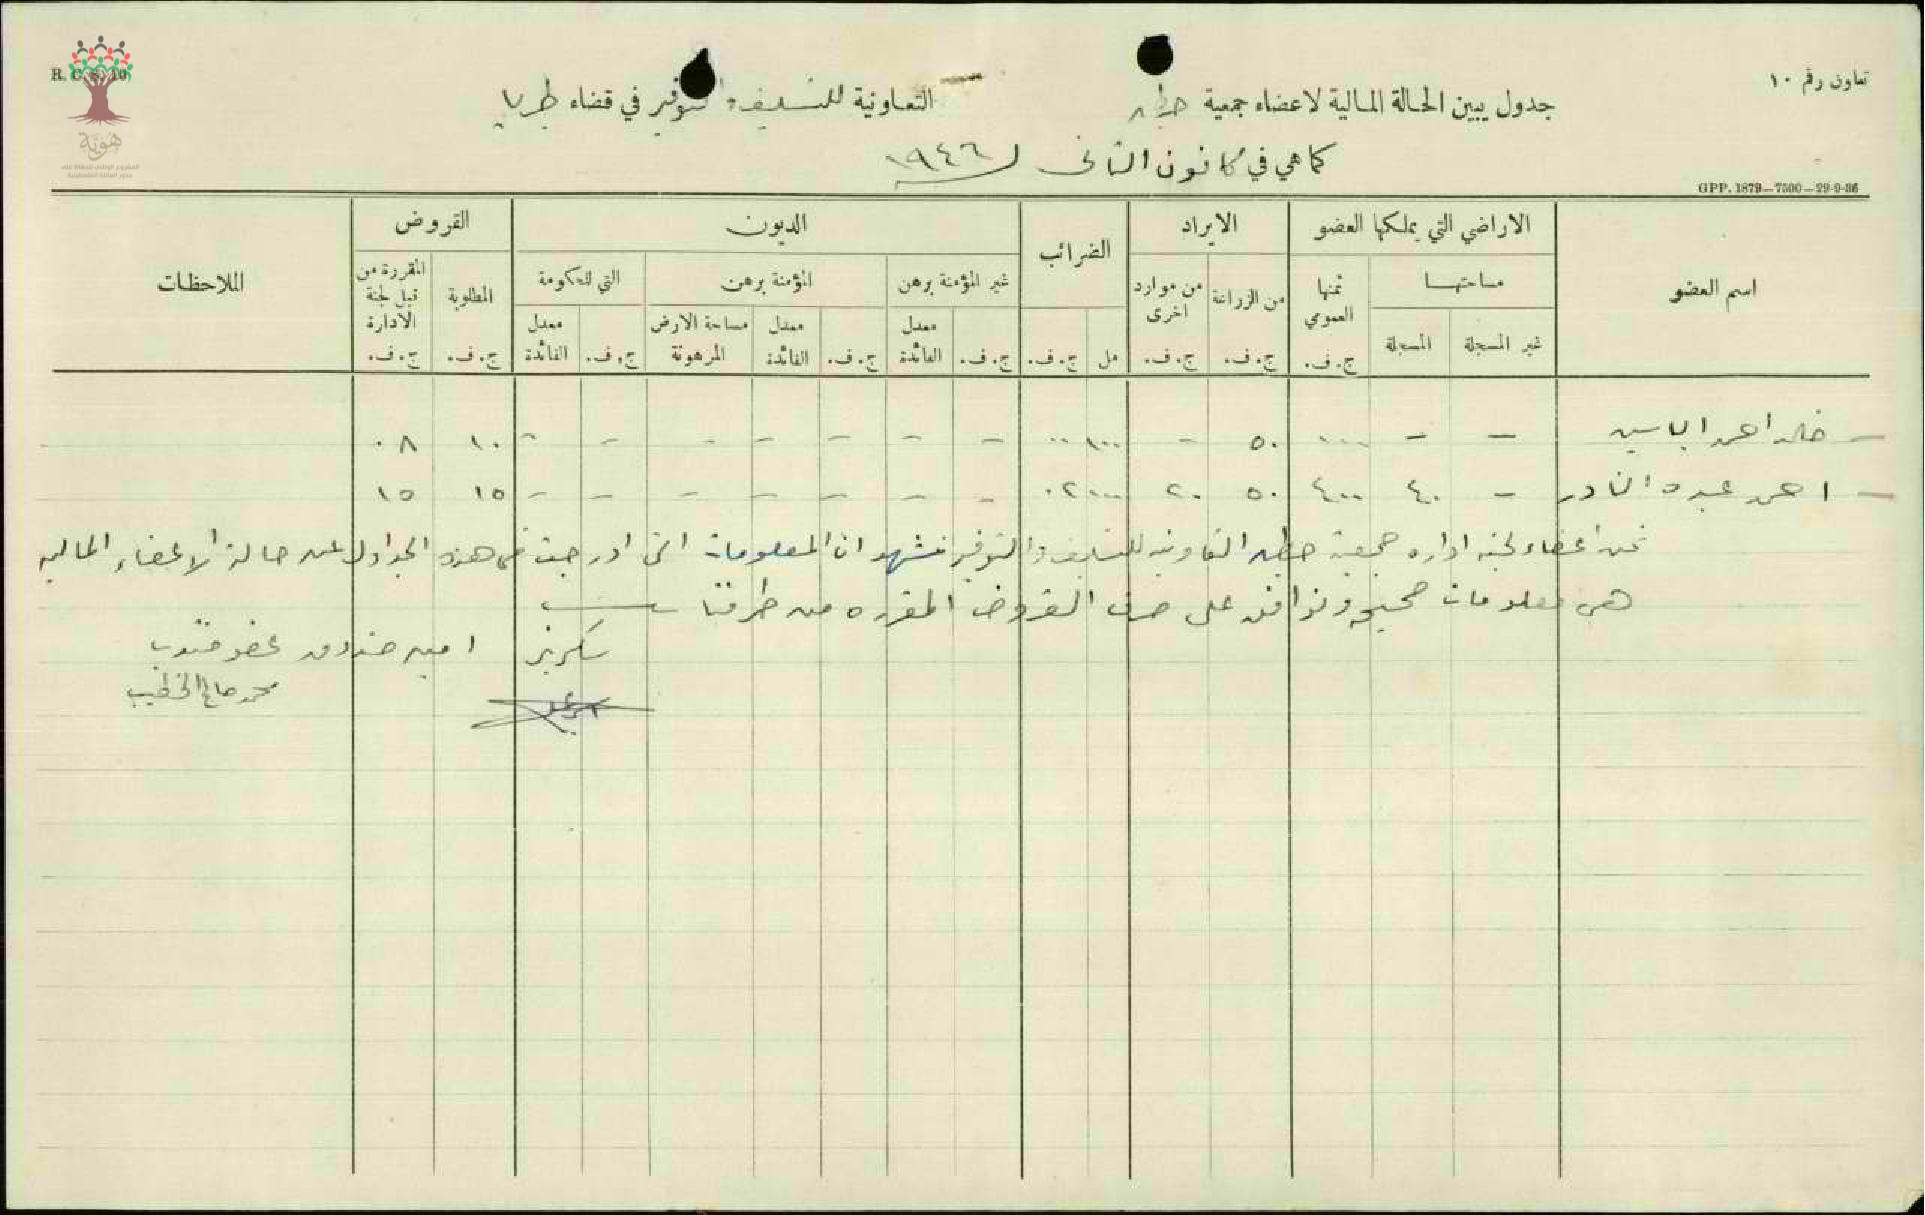 تعاون رقم ١٠
R. C. S. 10
هَوِيَّة
المشروع الوطني للحفاظ على
جذور العائلة الفلسطينية
جدول يبين الحالة المالية لاعضاء جمعية حطين التعاونية للتسليف والتوفير في قضاء طبريا
كما هي في كانون الثاني ١٩٤٦
GPP. 1879—7500—29-9-36
اسم العضو الاراضي التي يملكها العضو الايراد الضرائب الديون القروض الملاحظات
مساحتها ثمنها العمومي من الزراعة من موارد اخرى غير المؤمنة برهن المؤمنة برهن التي للحكومة المطلوبة المقررة من قبل لجنة الادارة
غير المسجلة المسجلة ج. ف. ج. ف. ج. ف. مل ج. ف. ج. ف. معدل الفائدة ج. ف. معدل الفائدة مساحة الارض المرهونة ج. ف. معدل الفائدة ج. ف. ج. ف.
— خالد احمد الياسين — — ١٠٠٠ ٥٠ — ١٠٠ ٠٠ — — — — — — — ١٠ ٠٨
— احمد عبد القادر — ٤٠ ٤٠٠ ٥٠ ٢٠ ٠٠ ٠٢ — — — — — — — ١٥ ١٥
نحن اعضاء لجنة ادارة جمعية حطين التعاونية للتسليف والتوفير نشهد ان المعلومات التي ادرجت في هذه الجداول عن حالة الاعضاء المالية
هي معلومات صحيحة ونوافق على صرف القروض المقرره من طرفنا
سكرتير امين صندوق عضو منتدب
محمد صالح الخطيب